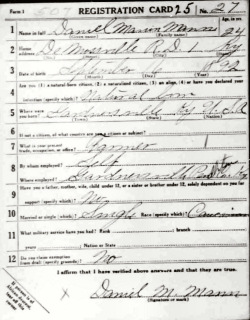 Form 1 REGISTRATION CARD 25 No. 27
1 Name in full Daniel Marvin Mann 24
(Given name) (Family name)
2 Home address De Mossville R.D. 1 Ky
3 Date of birth
(Month) (Day) (Year)
4 Are you (1) a natural-born citizen, (2) a naturalized citizen, (3) an alien, (4) or have you declared your
intention (specify which)? Natural born
5 Where were you born? Gardnersville Ky
6 If not a citizen, of what country are you a citizen or subject?
7 What is your present trade, occupation, or office? Farmer
8 By whom employed? Self
Where employed? Gardnersville
9 Have you a father, mother, wife, child under 12, or a sister or brother under 12, solely dependent on you for
support (specify which)? No
10 Married or single (which)? Single Race (specify which)? Caucasian
11 What military service have you had? Rank
branch
years Nation or State
12 Do you claim exemption from draft (specify grounds)? No
I affirm that I have verified above answers and that they are true.
x Daniel M. Mann
(Signature or mark)